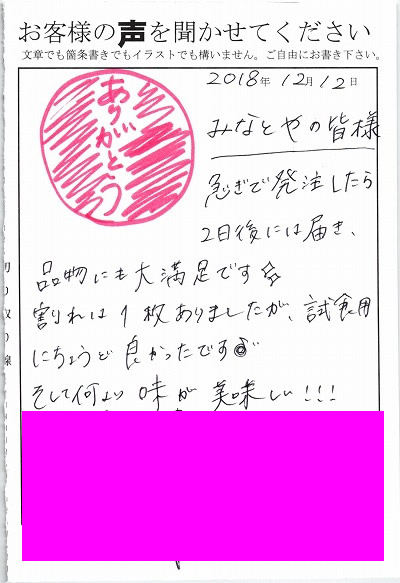 お客様の声を聞かせてください
文章でも箇条書きでもイラストでも構いません。ご自由にお書き下さい。
ありがとう
2018年 12月 12日
みなとやの皆様
急ぎで発注したら
2日後には届き、
品物にも大満足です
割れは1枚ありましたが、試食用
にちょうど良かったです
そして何より味が美味しい!!!
切り取り線